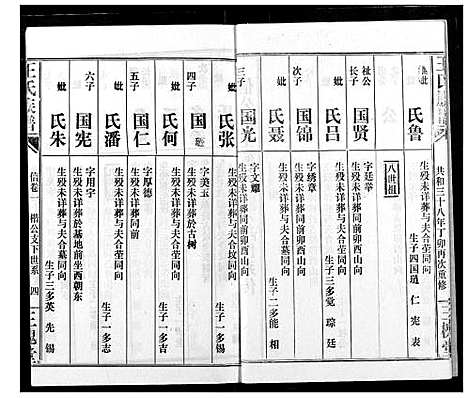 王氏族谱
共和三十八年丁卯再次重修
三槐堂
妣
氏鲁
生殁未详葬与夫合茔同向
生子四国
仁 宪 表
八世祖
祉公
长子
国贤
字廷举
生殁未详葬同前卯酉山向
妣
氏吕
生殁未详葬与夫合茔同向
生子三多觉 琮 廷
次子
国锦
字绣章
生殁未详葬同前卯酉山向
妣
氏聂
生殁未详葬与夫合墓同向
生子二多能 相
三子
国光
字文耀
生殁未详葬同前卯酉山向
妣
氏张
生殁未详葬与夫合坟同向
生子一多锡
四子
国
字美玉
生殁未详葬於古树
妣
氏何
生殁未详葬与夫合墓同向
生子一多吉
五子
国仁
字厚德
生殁未详葬同前
妣
氏潘
生殁未详葬与夫合茔同向
生子一多志
六子
国宪
字用宇
生殁未详葬於基地前坐西朝东
妣
氏朱
生殁未详葬与夫合墓同向
生子三多英 先 锡
王氏族谱
信卷一
楷公支下世系
四
三槐堂